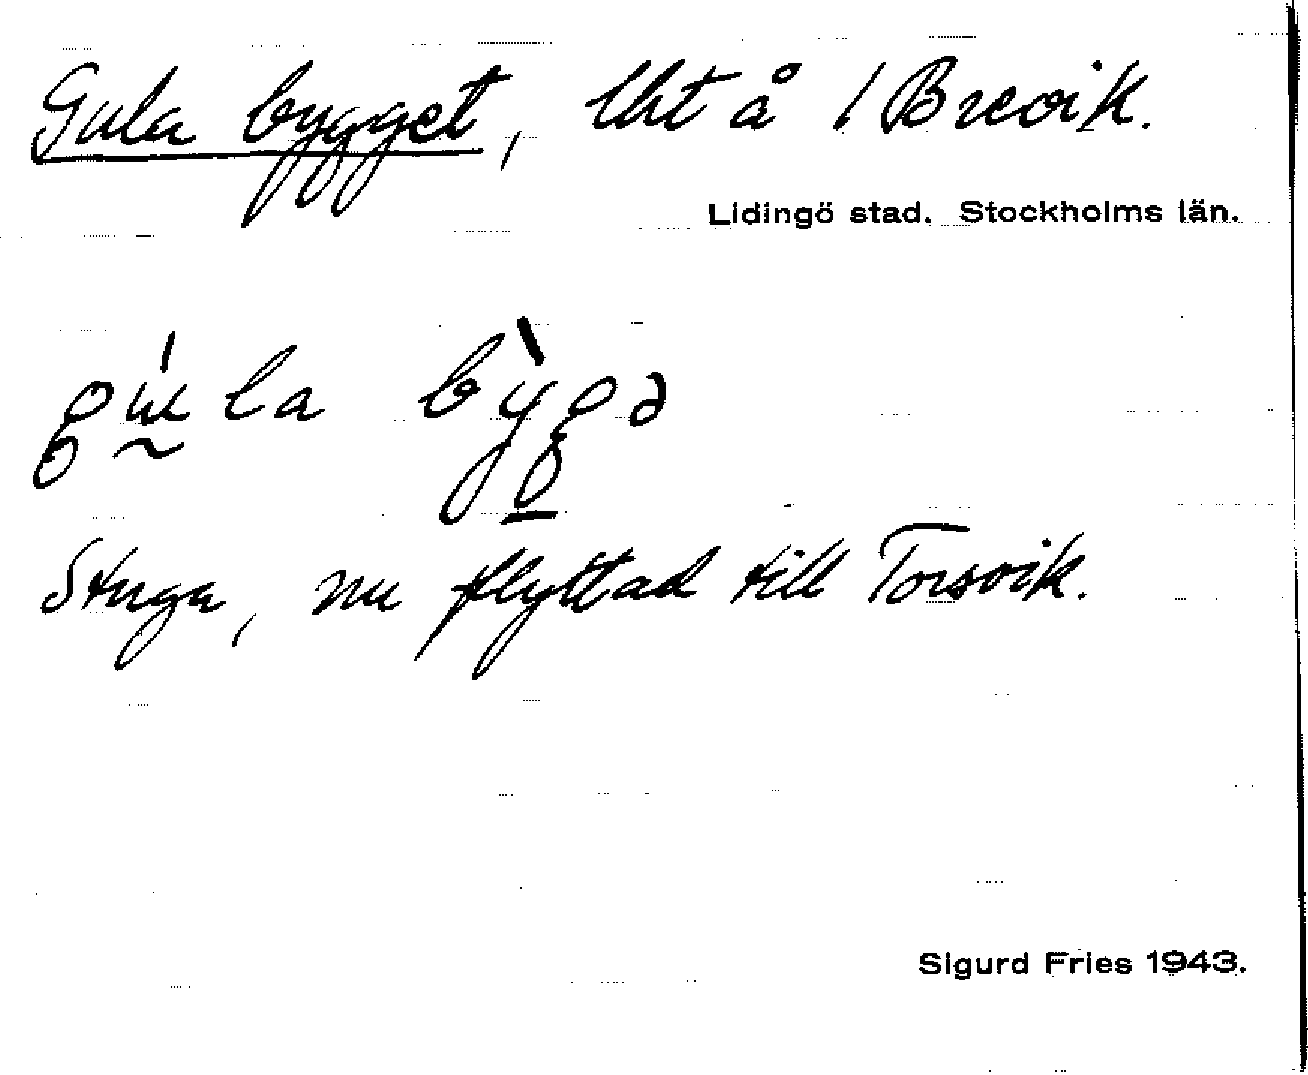 Gula bygget, lht å 1 Brevik.
Lidingö stad. Stockholms län.
gu̍la by̍gə
Stuga, nu flyttad till Torsvik.
Sigurd Fries 1943.